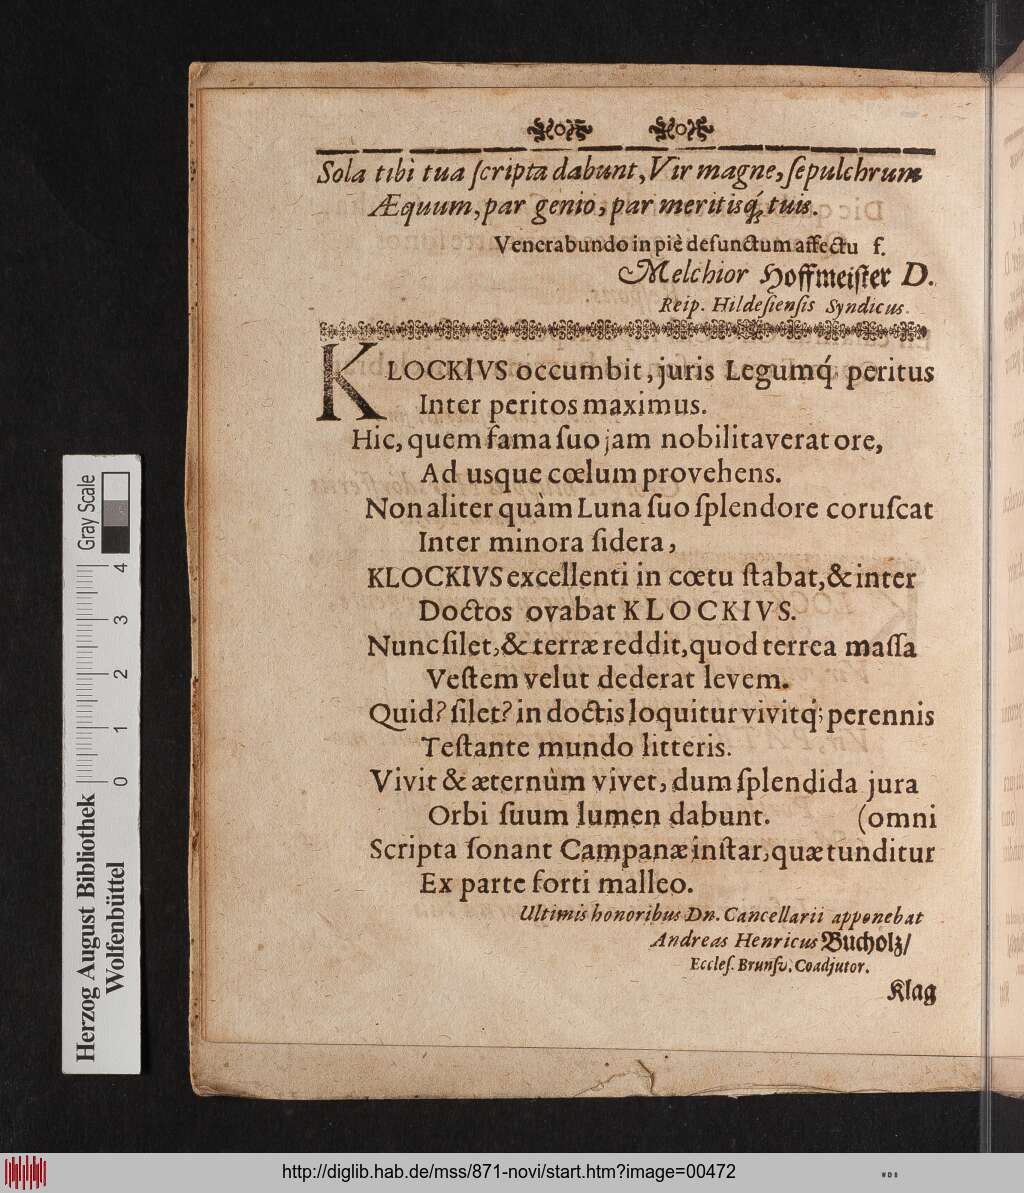 Sola tibi tua ſcripta dabunt, Vir magne, ſepulchrum
Æquum, par genio, par meritisq́; tuis.
Venerabundo in piè defunctum affectu f.
Melchior Hoffmeiſter D.
Reip. Hildeſienſis Syndicus.
KLOCKIVS occumbit, juris Legumq́; peritus
Inter peritos maximus.
Hic, quem fama ſuo jam nobilitaverat ore,
Ad usque cœlum provehens.
Non aliter quàm Luna ſuo ſplendore coruſcat
Inter minora ſidera,
KLOCKIVS excellenti in cœtu ſtabat, & inter
Doctos ovabat KLOCKIVS.
Nunc ſilet, & terræ reddit, quod terrea maſſa
Veſtem velut dederat levem.
Quid? ſilet? in doctis loquitur vivitq́; perennis
Teſtante mundo litteris.
Vivit & æternùm vivet, dum ſplendida jura
Orbi ſuum lumen dabunt. (omni
Scripta ſonant Campanæ inſtar, quæ tunditur
Ex parte forti malleo.
Ultimis honoribus Dn. Cancellarii apponebat
Andreas Henricus Bucholz/
Eccleſ. Brunſv. Coadjutor.
Klag
Herzog August Bibliothek
Wolfenbüttel
Gray Scale
0 1 2 3 4
http://diglib.hab.de/mss/871-novi/start.htm?image=00472